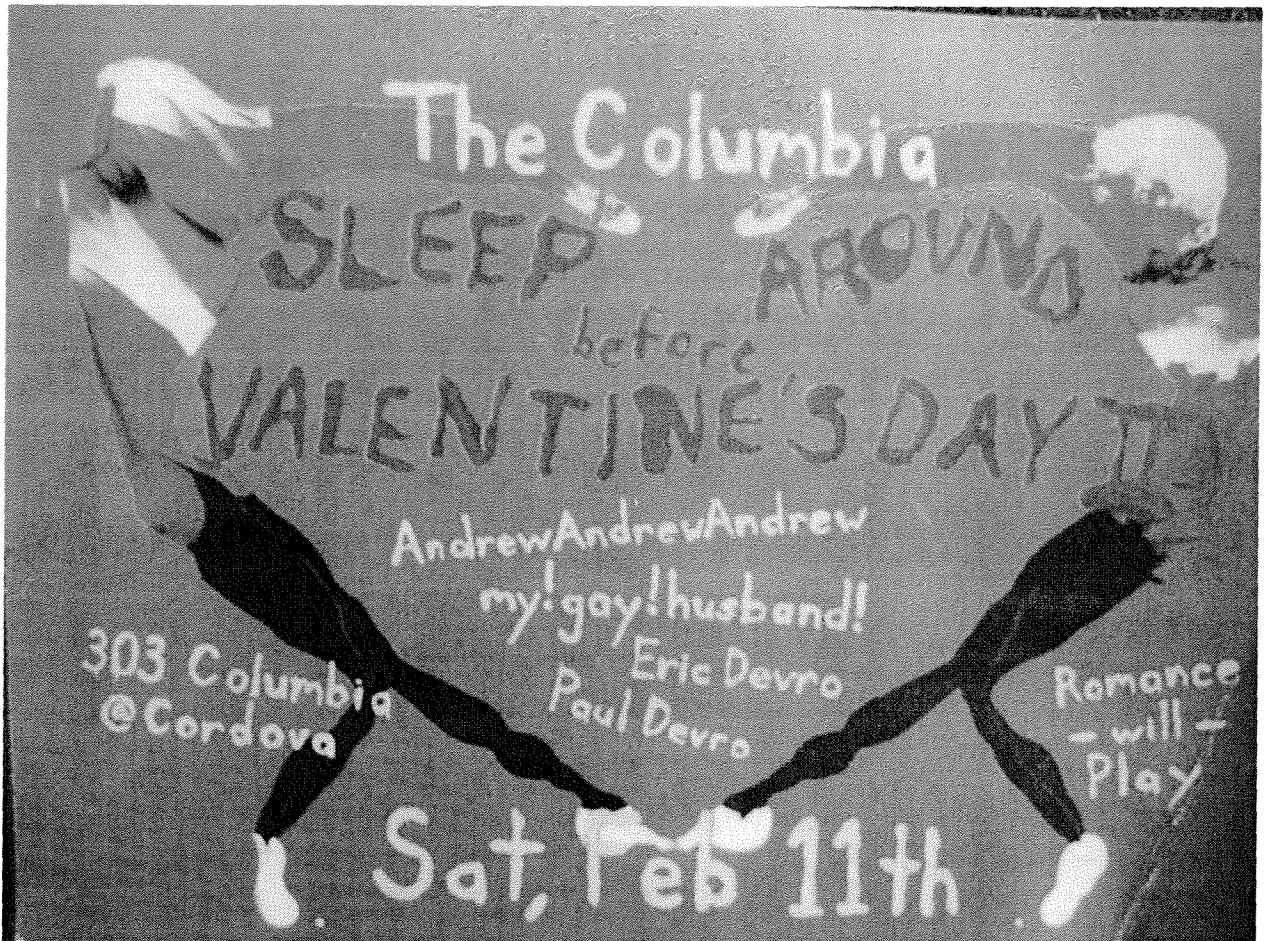 The Columbia
SLEEP AROUND
before
VALENTINE'S DAY II
AndrewAndrewAndrew
my!gay!husband!
Eric Devro
Paul Devro
303 Columbia
@Cordova
Romance
- will -
Play
Sat, Feb 11th